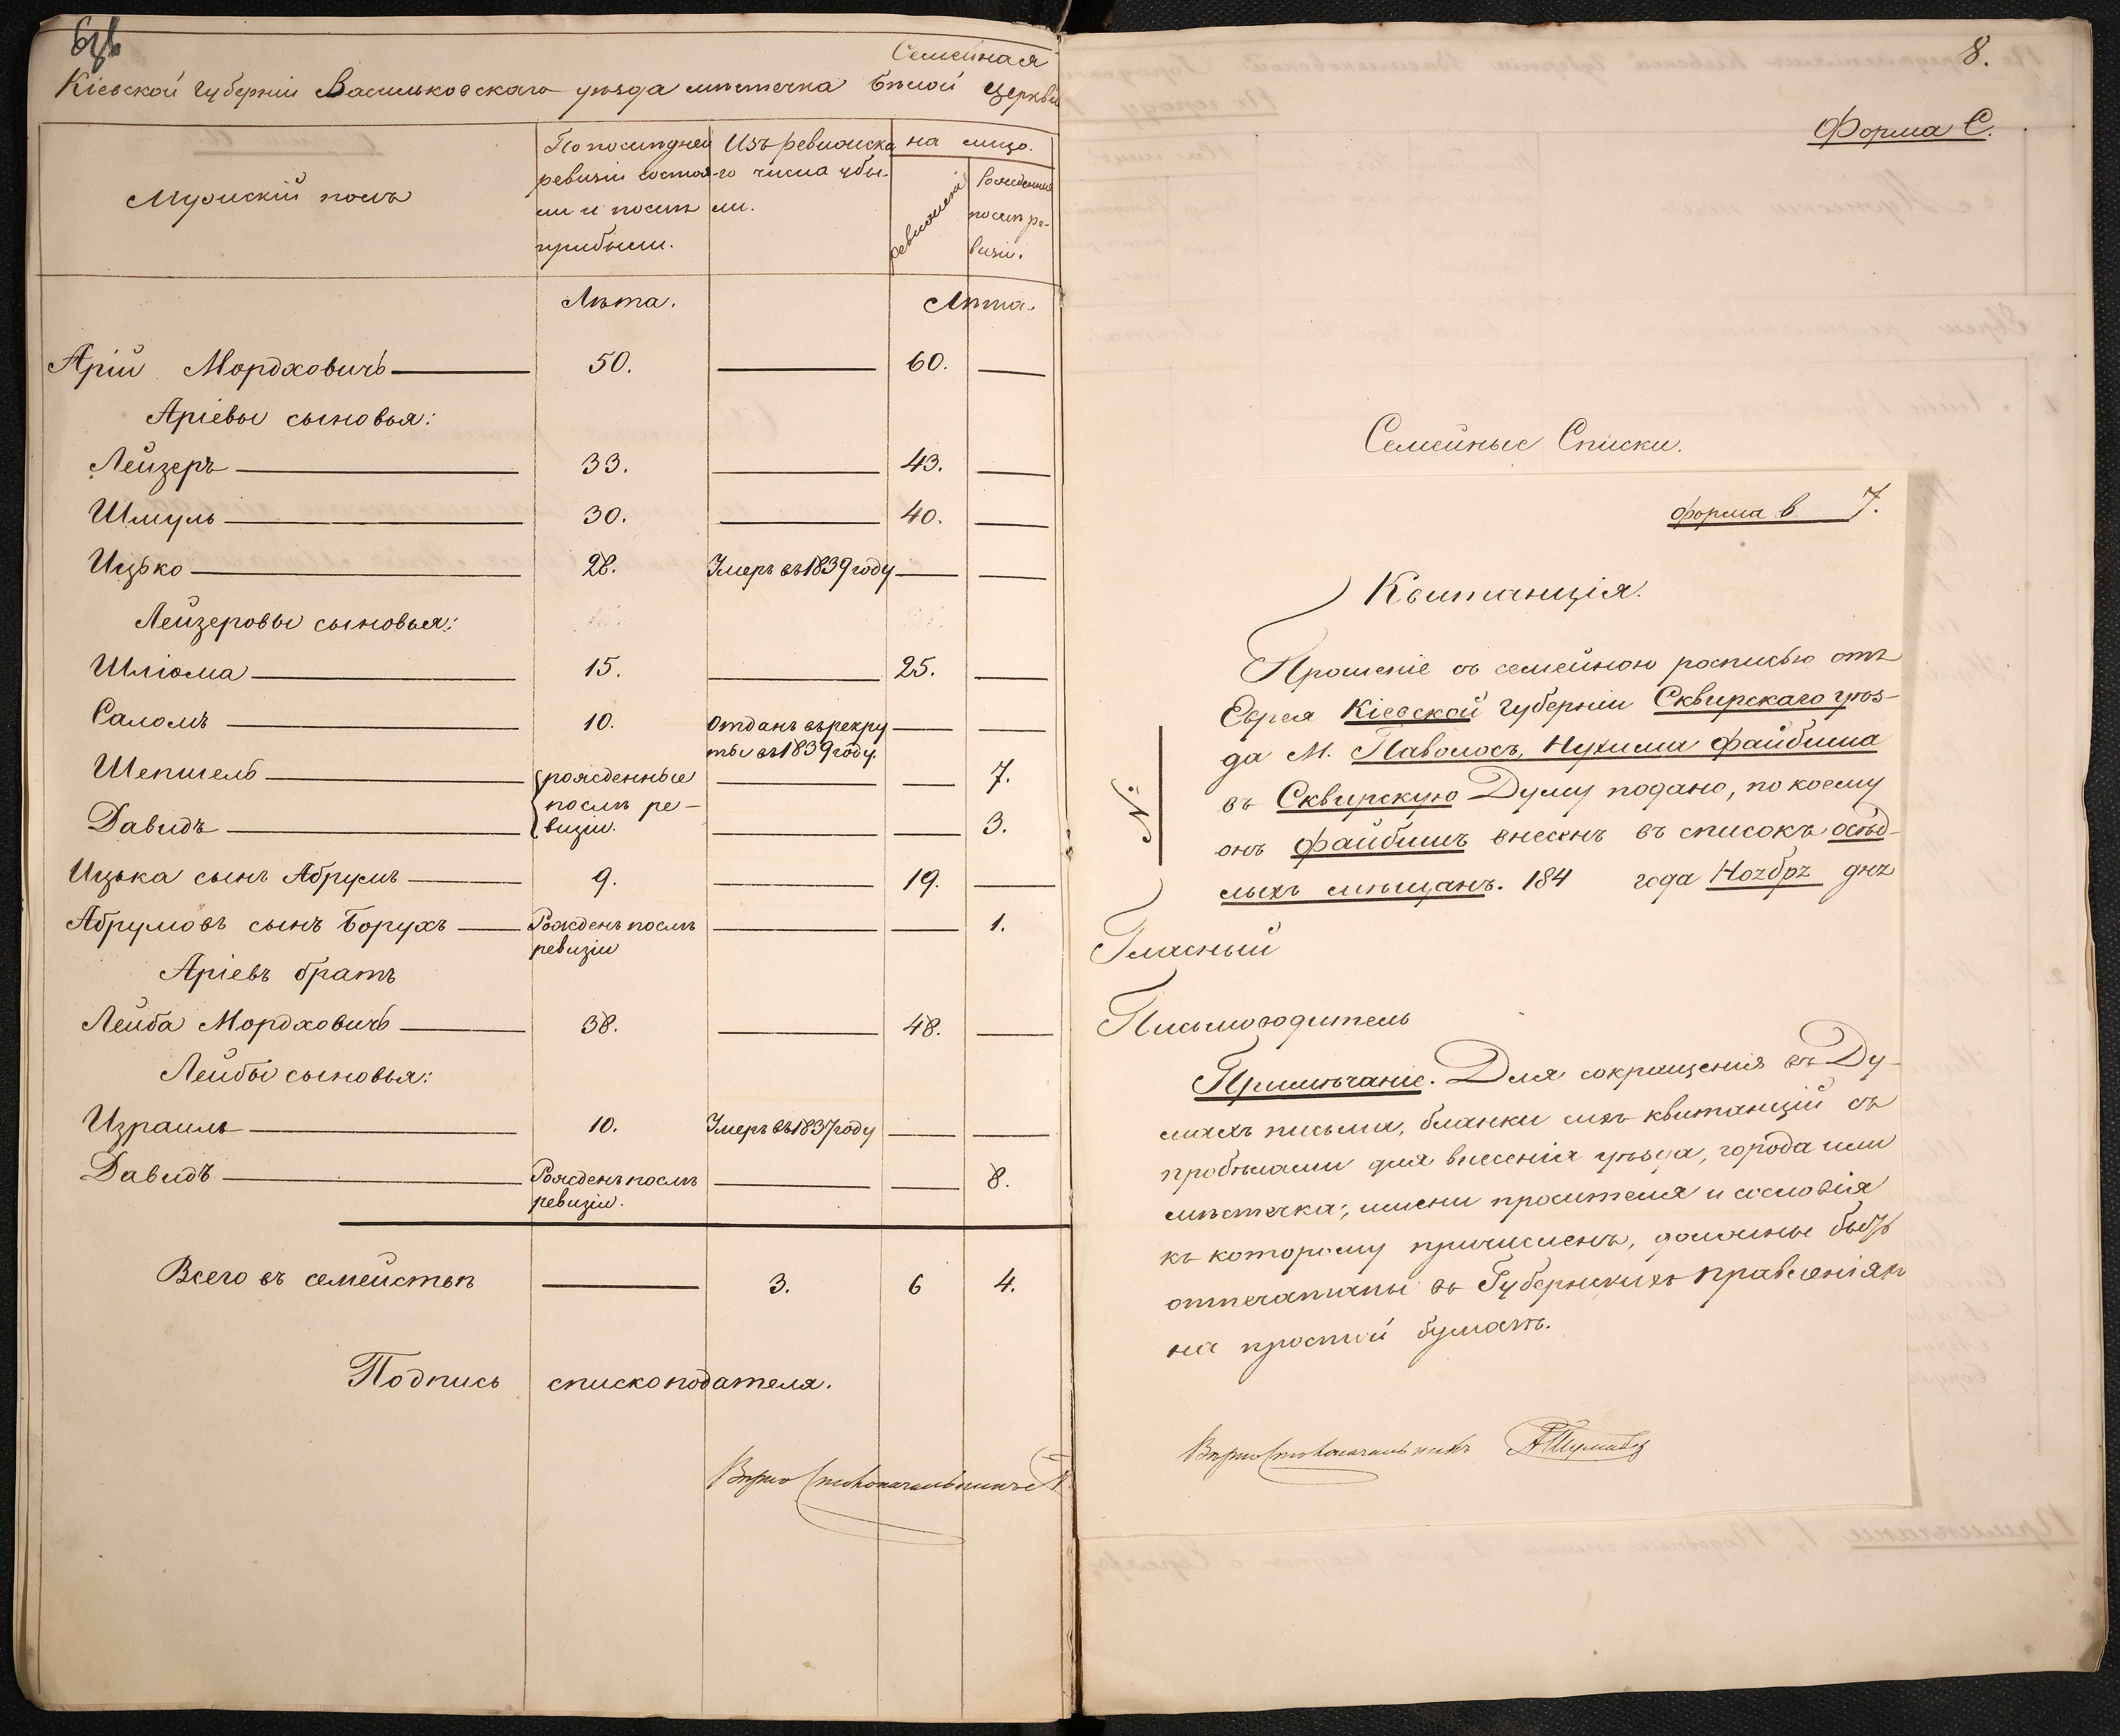 Семейная
Кіевской Губерніи Васильковскаго уѣзда мѣстечка Бѣлой Церкви
Мужескій полъ
По послѣдней
ревизіи состоя-
ли и послѣ
прибыли.
Изъ ревизска
го числа убы-
ли.
на лицо.
ревизскій
Рожденные
послѣ ре-
визіи.
Лѣта.
Лѣта.
Арій Мордховичъ 50. 60.
Аріевы сыновья:
Лейзеръ 33. 43.
Шмуль 30. 40.
Ицько 28. Умеръ въ 1839 году
Лейзеровы сыновья:
Шліома 15. 25.
Саломъ 10. Отданъ въ рекру
ты въ 1839 году.
Шепшель рожденные 7.
послѣ ре-
Давидъ визіи. 3.
Ицька сынъ Абрумъ 9. 19.
Абрумовъ сынъ Борухъ Рожденъ послѣ 1.
ревизіи
Аріевъ братъ
Лейба Мордховичъ 38. 48.
Лейбы сыновья:
Израиль 10. Умеръ въ 1837 году
Давидъ Рожденъ послѣ 8.
ревизіи.
Всего въ семействѣ 3. 6 4.
Подпись спископодателя.
Вѣрно Столоначальникъ
8.
Форма С.
Семейные Списки.
форма в 7.
Квитанція.
Прошеніе съ семейною росписью отъ
Еврея Кіевской Губерніи Сквирскаго уѣз-
да М. Паволочь, Нухима Файбиша
въ Сквирскую Думу подано, по коему
онъ Файбишъ внесенъ въ списокъ осѣд-
лыхъ мѣщанъ. 184 года Ноябрѧ днѧ
№
Гласный
Письмоводитель
Примѣчаніе. Для сокращенія въ Ду-
махъ письма, бланки сихъ квитанцій съ
пробѣлами для внесенія уѣзда, города или
мѣстечка; имени просителя и сословія
къ которому причисленъ, должны быть
отпечатаны въ Губернскихъ правленіяхъ
на простой бумагѣ.
Вѣрно Столоначальникъ